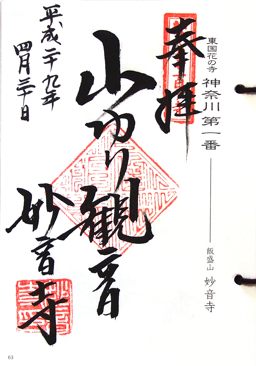 東国花の寺
神奈川 第一番
飯盛山 妙音寺
奉拝
山ゆり観音
妙音寺
平成二十九年
四月三十日
61